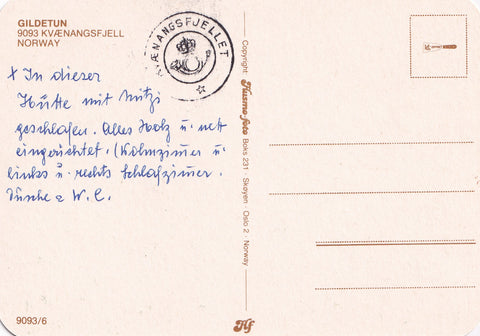 GILDETUN
9093 KVÆNANGSFJELL
NORWAY
KVÆNANGSFJELLET
x In dieser
Hütte mit Mitzi
geschlafen. Alles Holz u. nett
eingerichtet. (Wohnzimmer u.
links u. rechts Schlafzimmer.
Dusche u W.C.
Copyright: Husmo-foto Boks 231 · Skøyen · Oslo 2 · Norway
9093/6
Hf